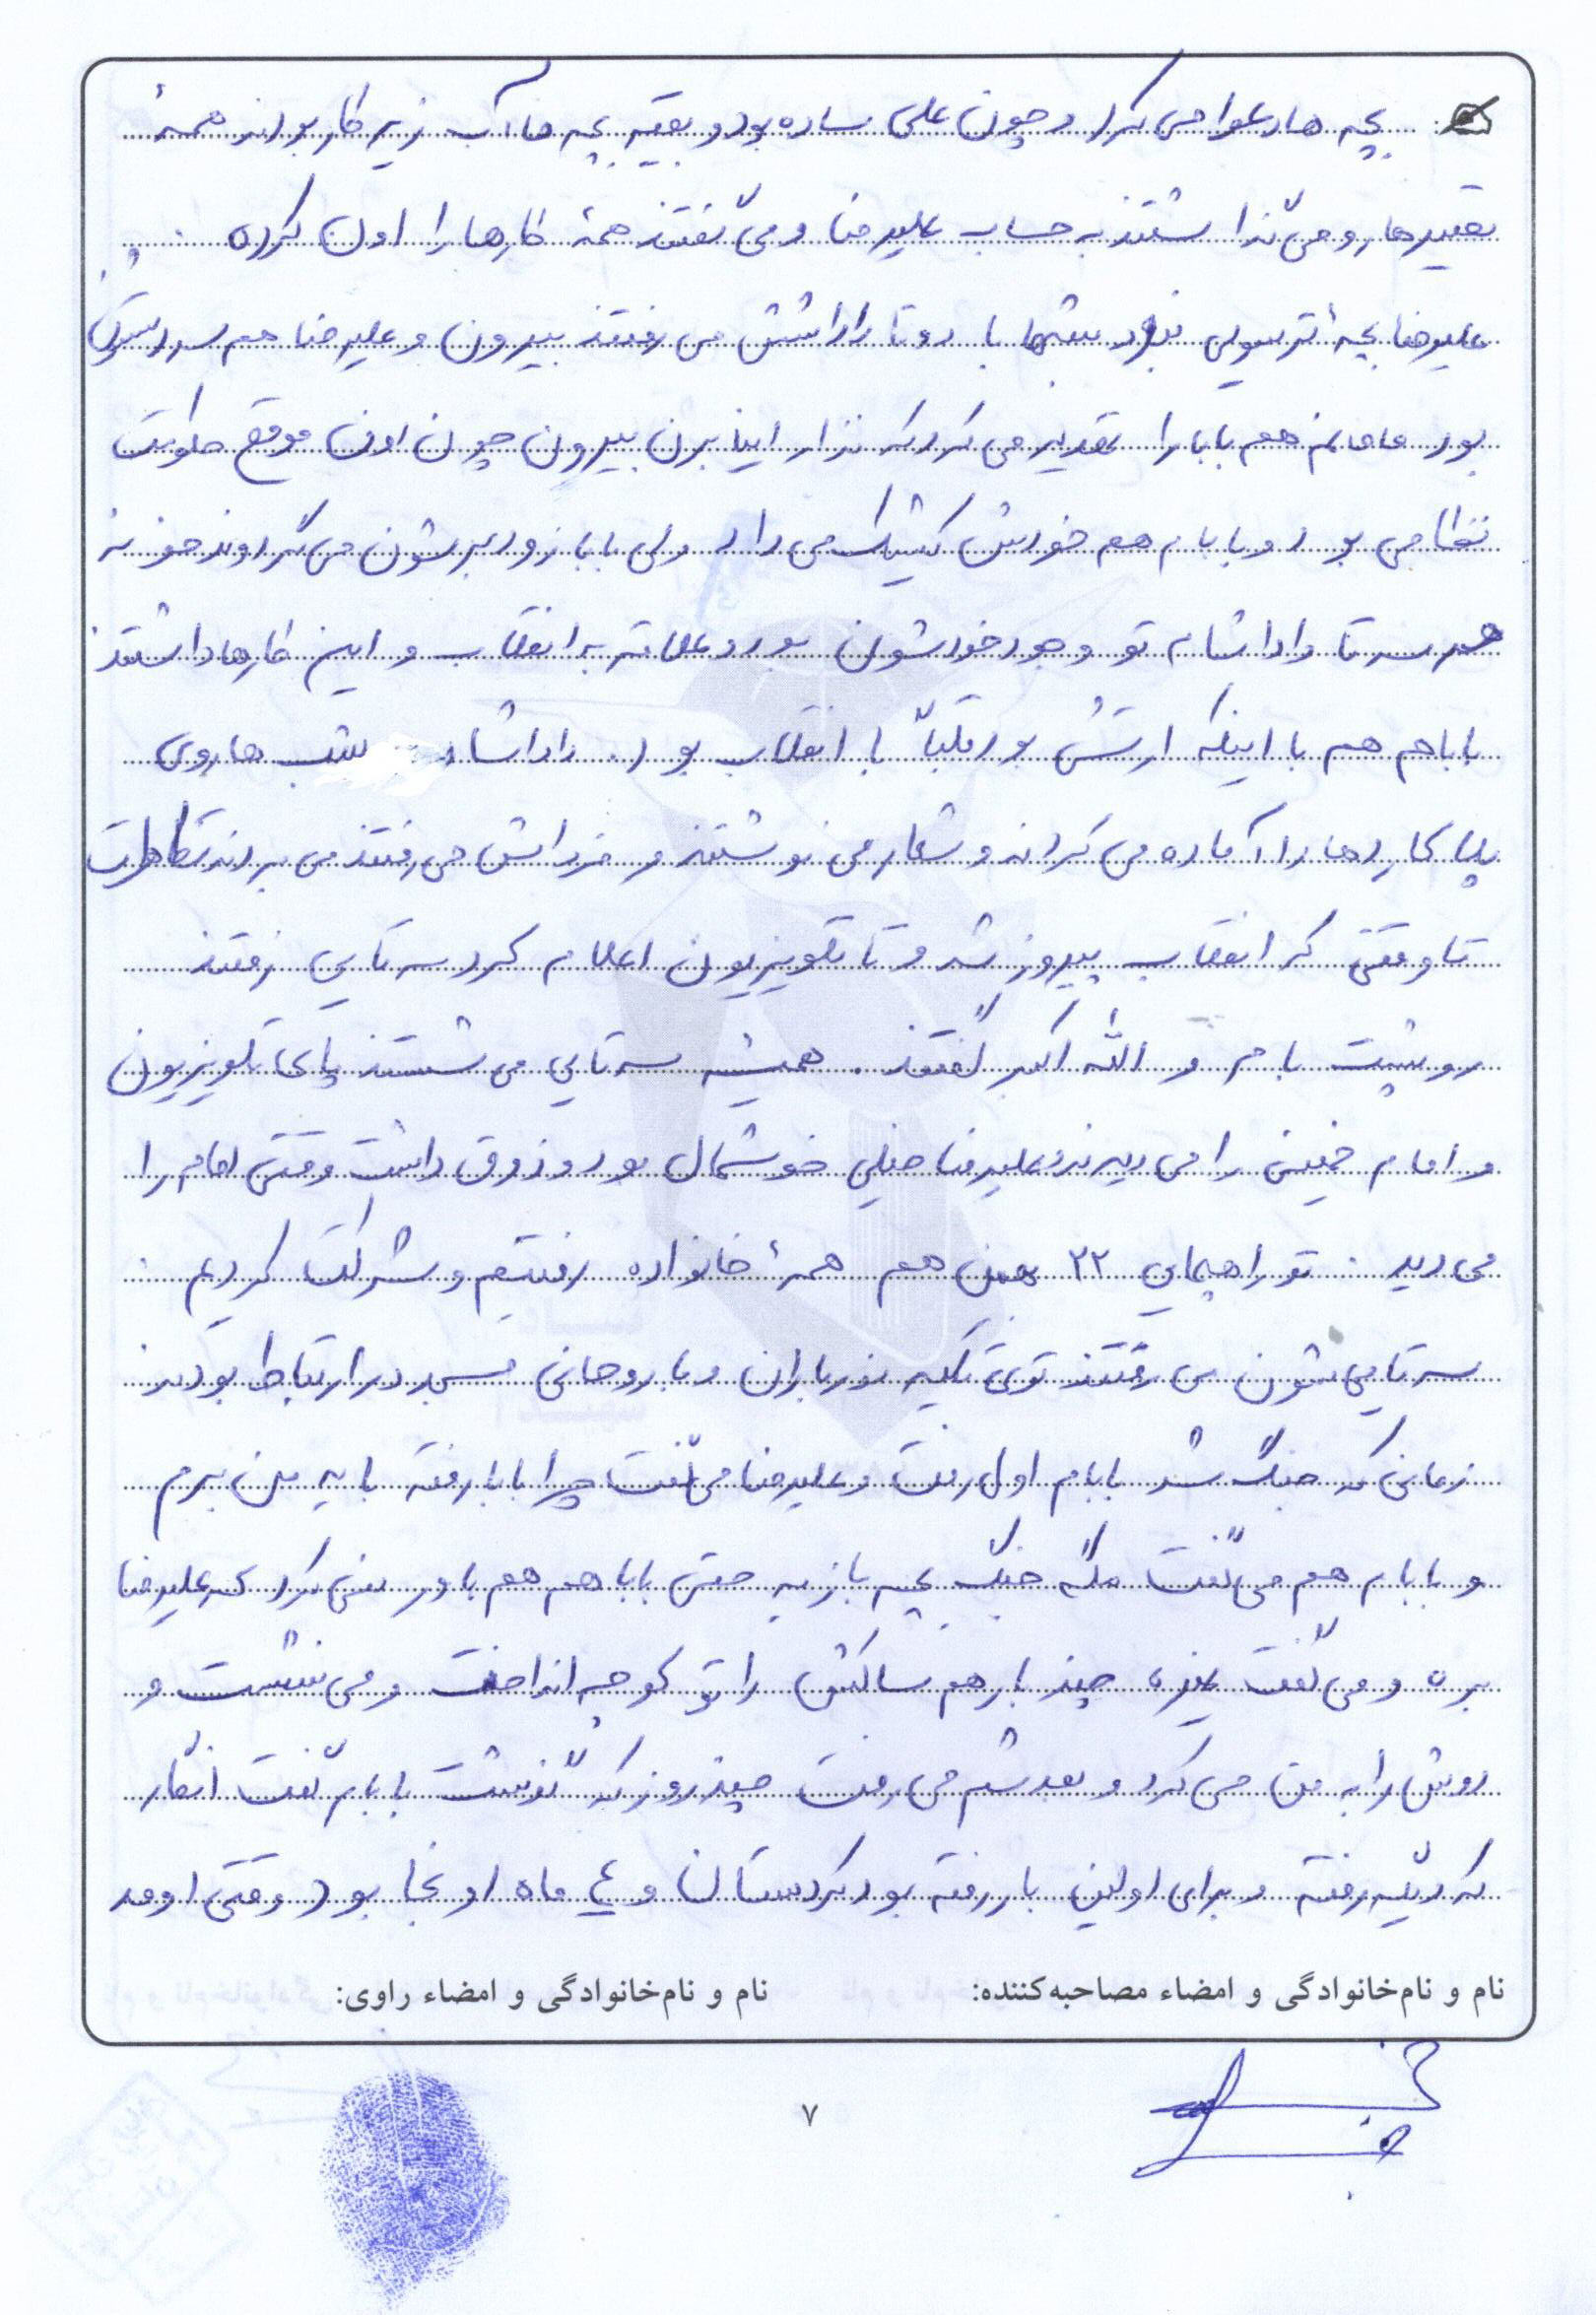 بچه ها دعوا می کرد و چون علی ساده بود و بقیه بچه ها آب زیر کار بودند همۀ
تقصیرها رو می گذاشتند به حساب علیرضا و می گفتند همۀ کارها را اون کرده .
علیرضا بچۀ ترسویی نبود شبها با دوتا داداشش می رفتند بیرون و علیرضا هم سردستشون
بود مامانم هم بابا را تهدید می کرد که نذار اینا برن بیرون چون اون موقع حکومت
نظامی بود و بابام هم خودش کشیک می داد ولی بابا زود برشون می گردوند خونه
هر سه تا داداشام تو وجود خودشون بود و علاقه به انقلاب و این کارها داشتند
باباهم هم با اینکه ارتشی بود قلباً با انقلاب بود . داداشام شب ها روی
پلاکاردها را آماده می کردند و شعار می نوشتند و فرداش می رفتند می بردند تظاهرات
تا وقتی که انقلاب پیروز شد و تا تلویزیون اعلام کرد سه تایی رفتند
رو پشت بام و الله اکبر گفتند . همیشه سه تایی می نشستند پای تلویزیون
و امام خمینی را می دیدند و علیرضا خیلی خوشحال بود و ذوق داشت وقتی امام را
می دید . تو راهپیمایی ۲۲ بهمن هم همۀ خانواده رفتیم و شرکت کردیم .
سه تایی شون می رفتند توی تکیه نورباران و با روحانی مسجد در ارتباط بودند
زمانی که جنگ شد بابام اول رفت و علیرضا می گفت چرا بابا رفته باید من برم
و بابام هم می گفت مگه جنگ بچه بازیه حتی باباهم هم باور نمی کرد که علیرضا
بره و می گفت چند بار هم ساکش را تو کوچه انداخت و می نشست و
روش را به من می کرد و بعدشم می رفت چند روز که گذشت بابام گفت انگار
که دیگه رفته و برای اولین بار رفته بود کردستان و ۴ ماه اونجا بود وقتی اومد
نام و نام‌خانوادگی و امضاء مصاحبه‌کننده: نام و نام‌خانوادگی و امضاء راوی:
۷